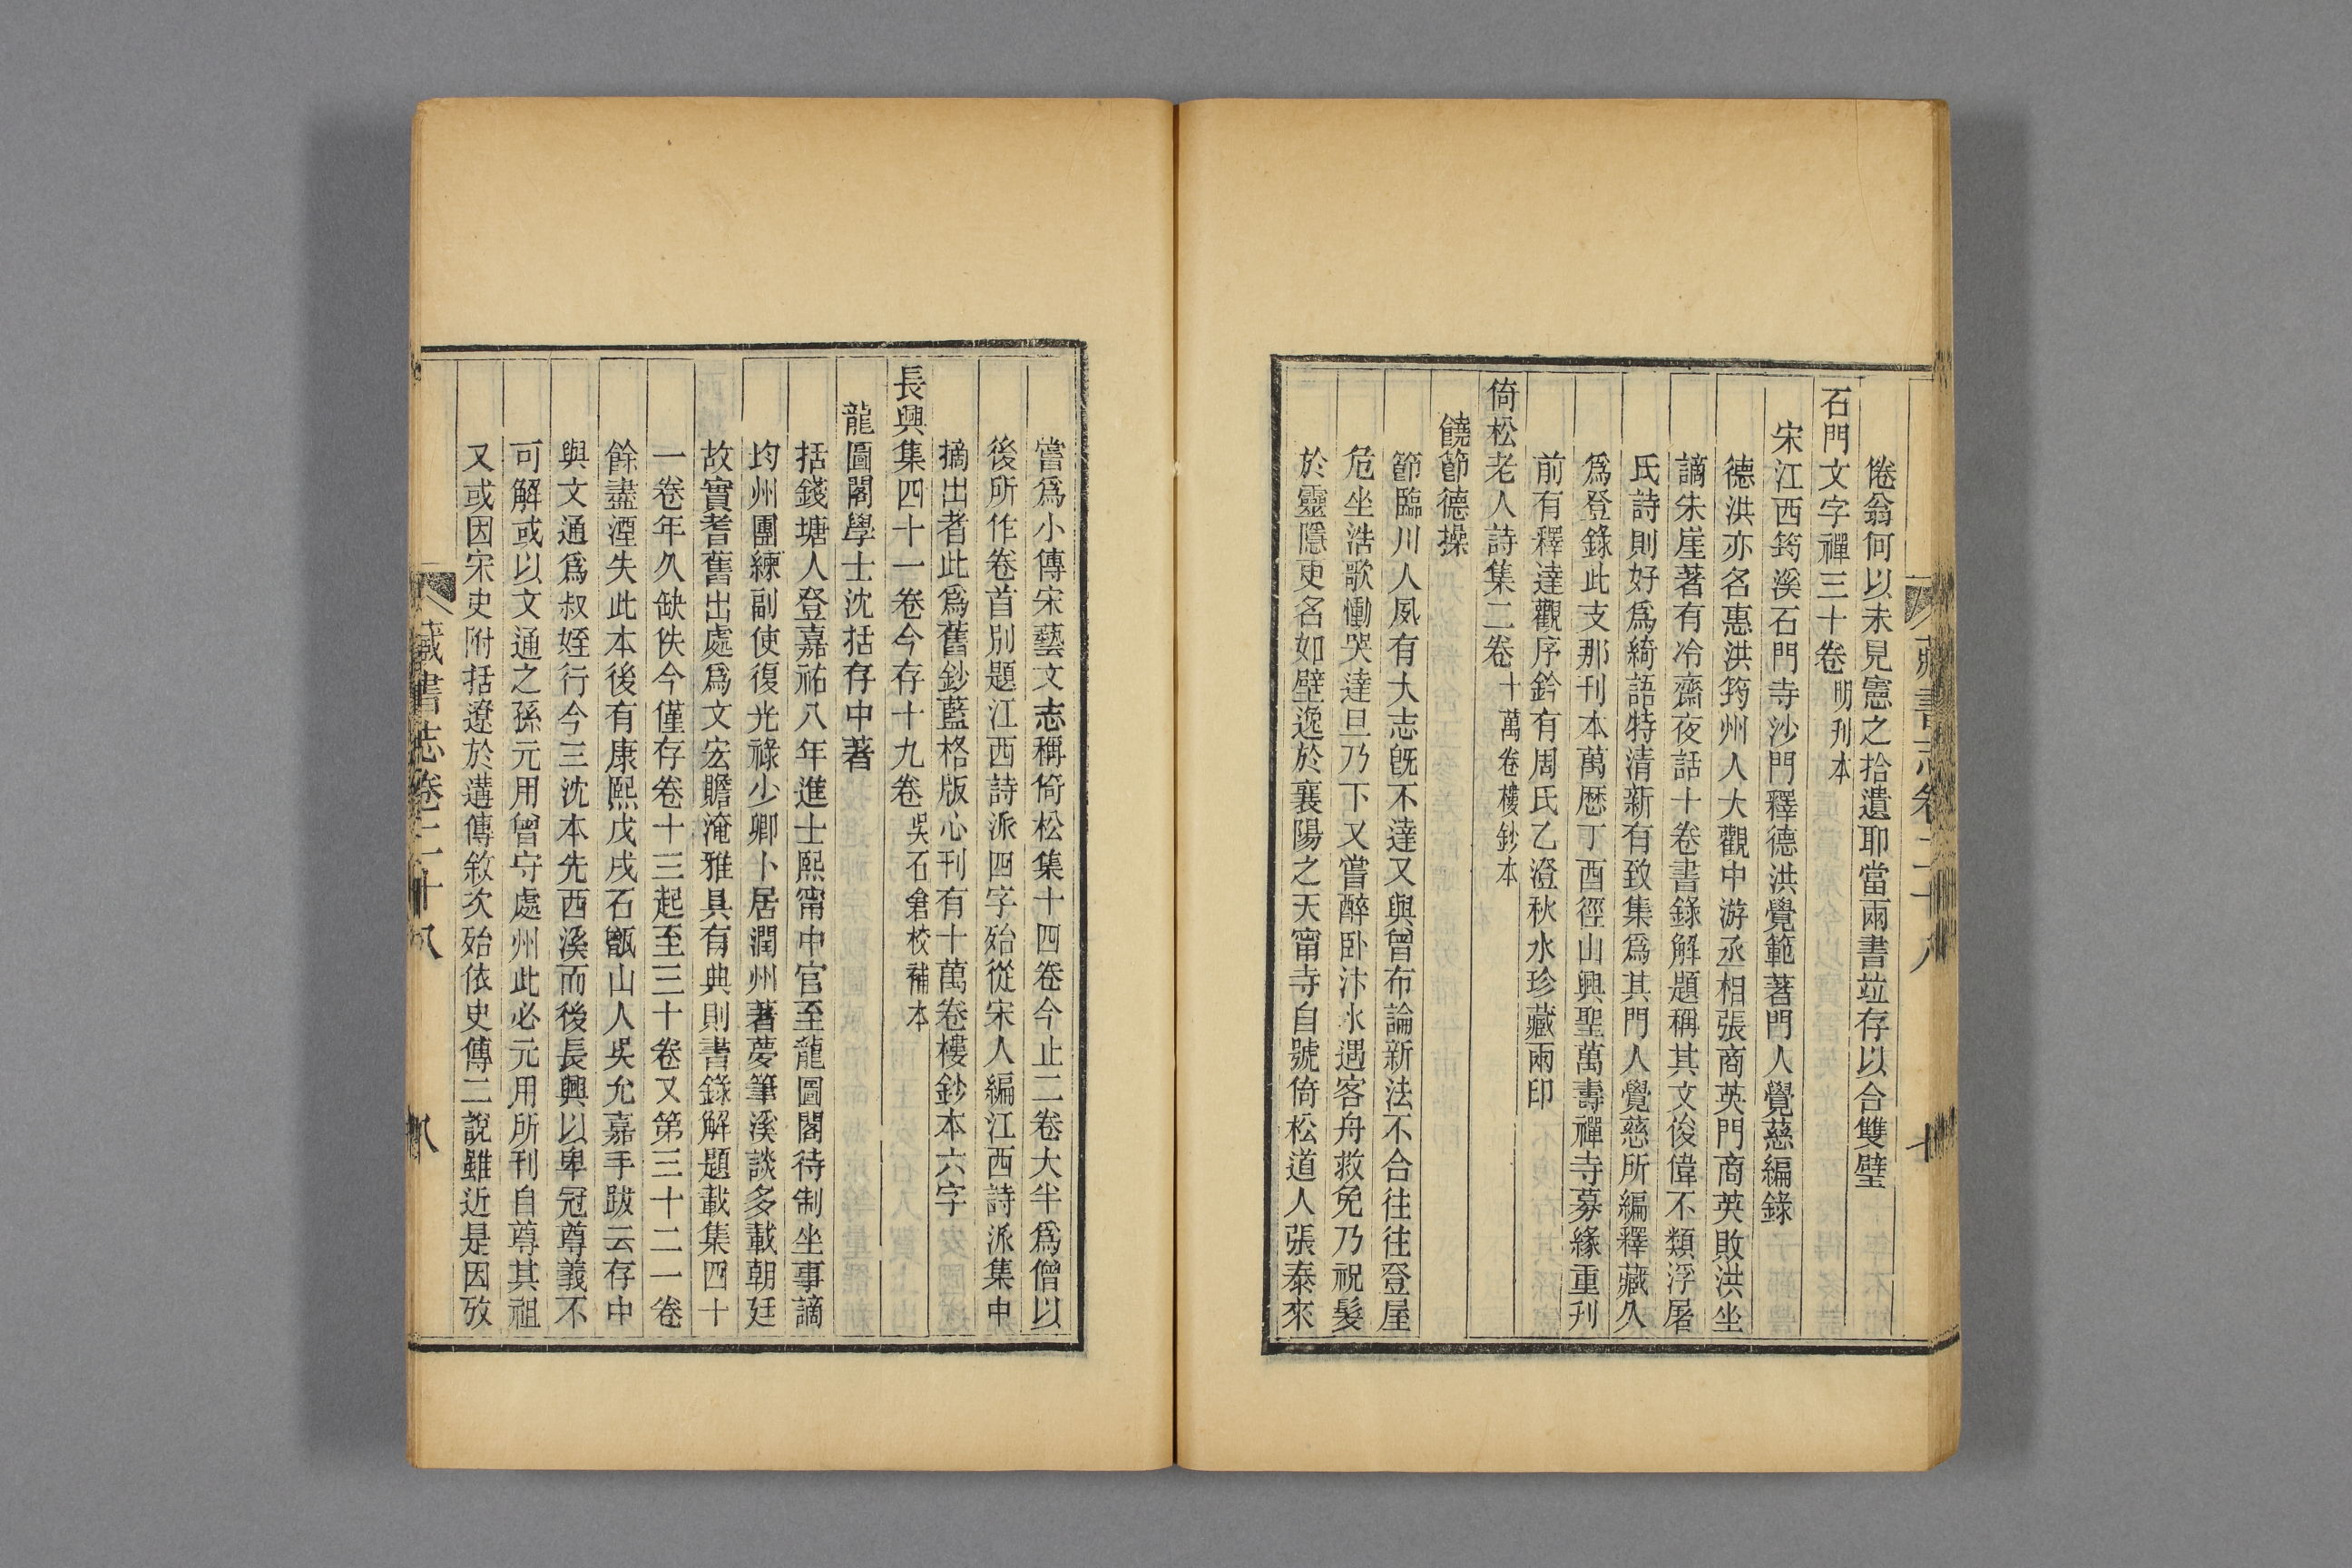 藏書志卷二十八
七
倦翁何以未見憲之拾遺耶當兩書竝存以合雙璧
石門文字禪三十卷明刋本
宋江西筠溪石門寺沙門釋德洪覺範著門人覺慈編錄
德洪亦名惠洪筠州人大觀中游丞相張商英門商英敗洪坐
謫朱崖著有冷齋夜話十卷書錄解題稱其文俊偉不類浮屠
氏詩則好爲綺語特清新有致集爲其門人覺慈所編釋藏久
爲登錄此支那刊本萬厯丁酉徑山興聖萬壽禪寺募緣重刋
前有釋達觀序鈐有周氏乙澄秋水珍藏兩印
倚松老人詩集二卷十萬卷樓鈔本
饒節德操
節臨川人夙有大志旣不達又與曾布論新法不合往往登屋
危坐浩歌慟哭達旦乃下又嘗醉卧汴水遇客舟救免乃祝髮
於靈隱更名如壁逸於襄陽之天甯寺自號倚松道人張泰來
嘗爲小傳宋藝文志稱倚松集十四卷今止二卷大半爲僧以
後所作卷首別題江西詩派四字殆從宋人編江西詩派集中
摘出者此爲舊鈔藍格版心刊有十萬卷樓鈔本六字
長興集四十一卷今存十九卷吳石倉校補本
龍圖閣學士沈括存中著
括錢塘人登嘉祐八年進士熙甯中官至龍圖閣待制坐事謫
均州團練副使復光祿少卿卜居潤州著夢筆溪談多載朝廷
故實耆舊出處爲文宏贍淹雅具有典則書錄解題載集四十
一卷年久缺佚今僅存卷十三起至三十卷又第三十二一卷
餘盡湮失此本後有康熙戊戌石甑山人吳允嘉手跋云存中
與文通爲叔姪行今三沈本先西溪而後長興以卑冠尊義不
可解或以文通之孫元用曾守處州此必元用所刊自尊其祖
又或因宋史附括遼於遘傳敘次殆依史傳二說雖近是因攷
藏書志卷二十八
八